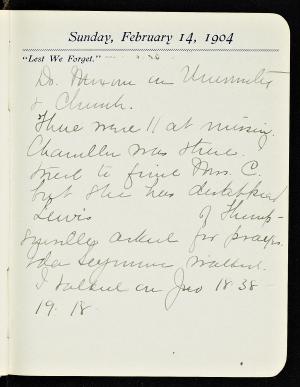 Sunday, February 14, 1904
"Lest We Forget."
Dr. in University
& Church.
There were 11 at mission.
Chandler was there.
tried to find Mrs. C.
but she has disappeared
Lewis of Thomp-
sonville asked for prayer.
Ida Seymour walked.
I talked on Jno 18-38-
19-18.